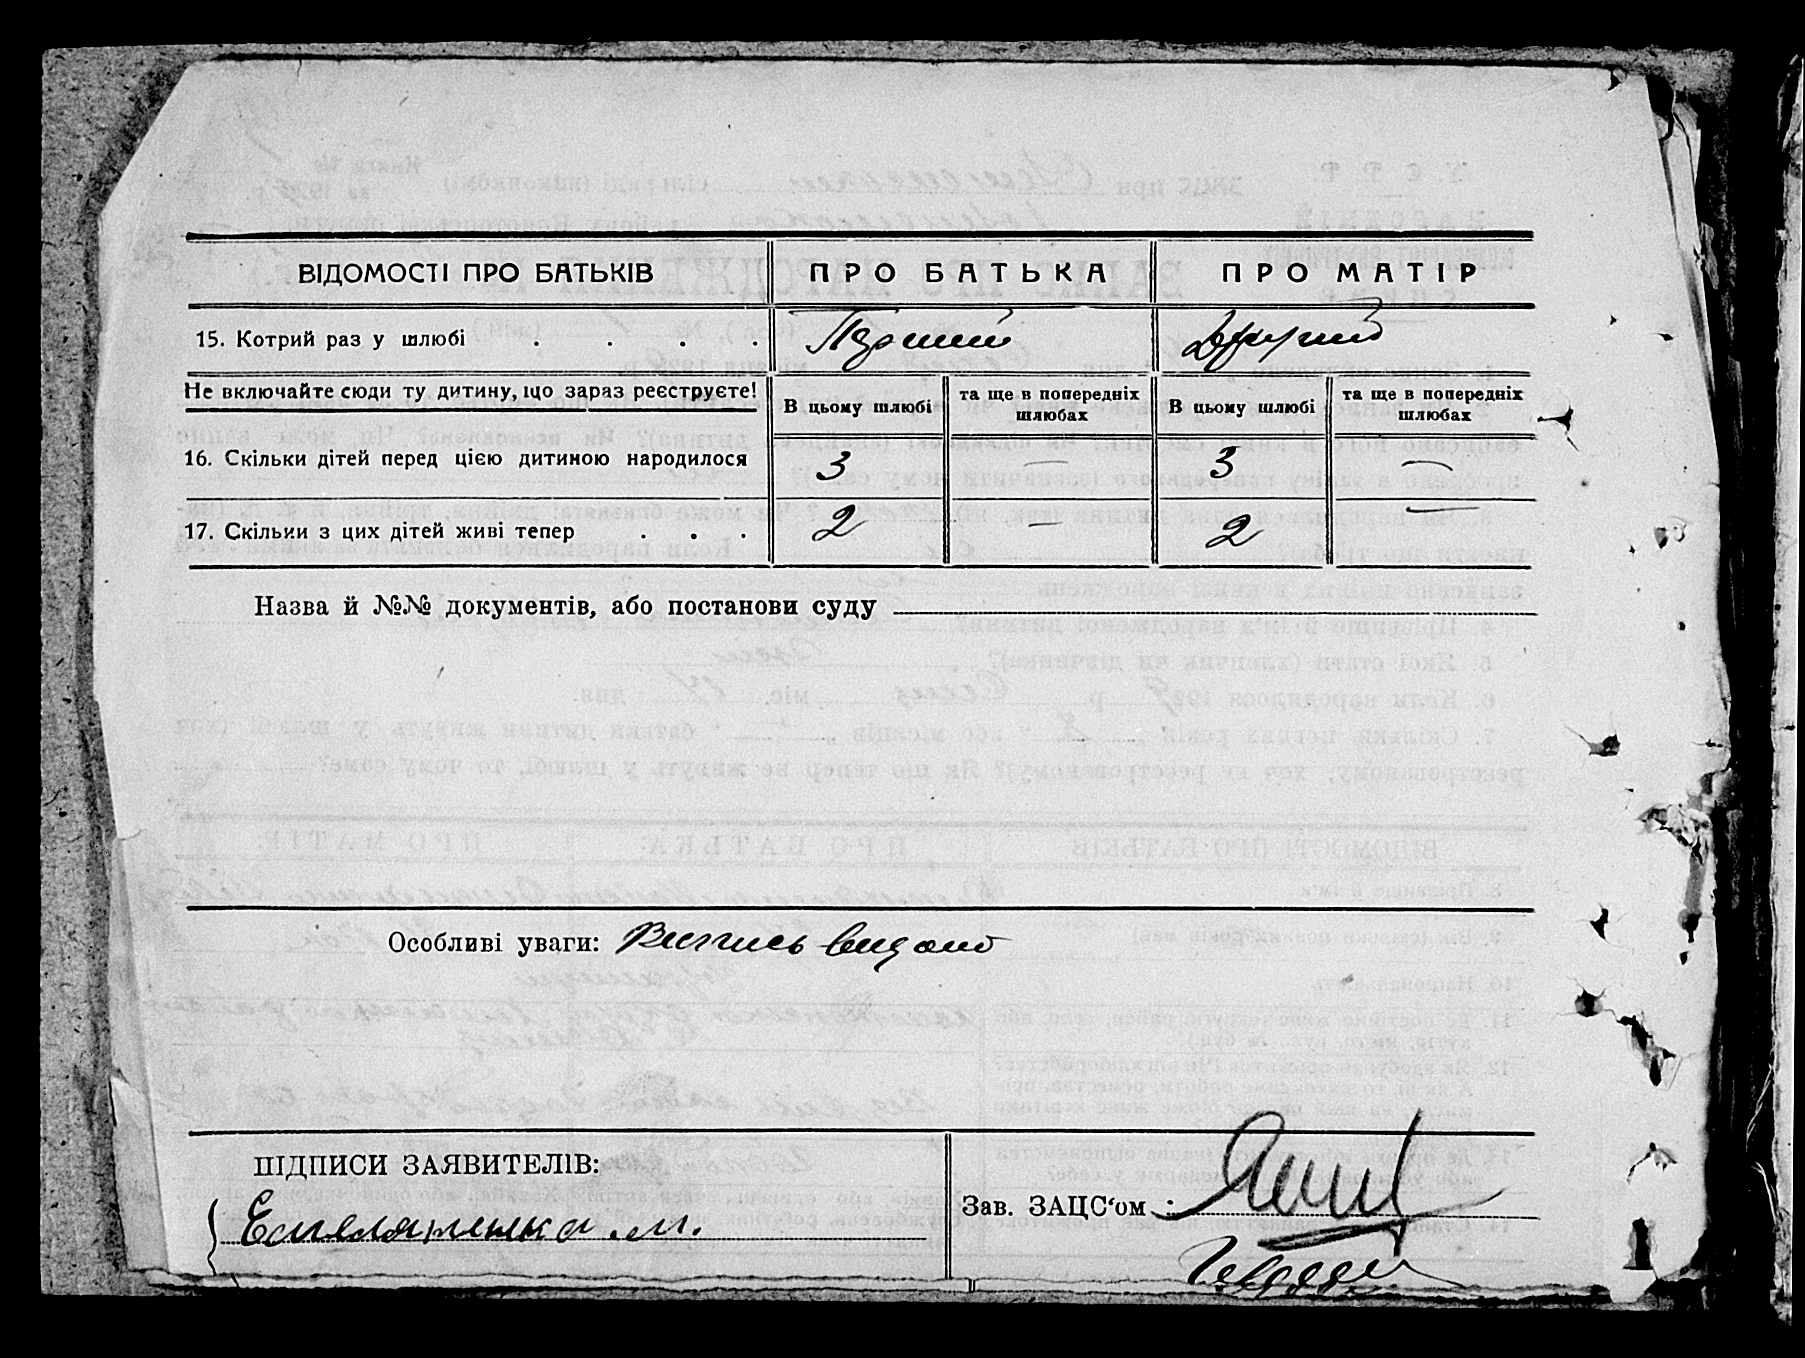 ВІДОМОСТІ ПРО БАТЬКІВ ПРО БАТЬКА ПРО МАТІР
15. Котрий раз у шлюбі . . . . Перший Другий
Не включайте сюди ту дитину, що зараз реєструєте! В цьому шлюбі та ще в попередніх шлюбах В цьому шлюбі та ще в попередніх шлюбах
16. Скільки дітей перед цією дитиною народилося 3 — 3 —
17. Скільки з цих дітей живі тепер . . . 2 — 2 —
Назва й №№ документів, або постанови суду
Особливі уваги: Випись видано
ПІДПИСИ ЗАЯВИТЕЛІВ:
Зав. ЗАЦС‘ом :